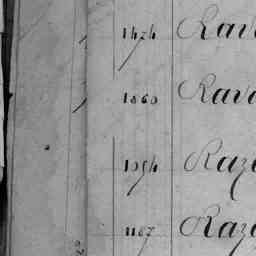 1474 Rav
1860 Rava
1054 Raze
1187 Raze